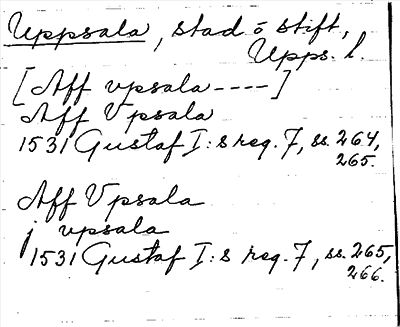 Uppsala, stad o stift,
Upps. l.
[Aff vpsala ----]
Aff Vpsala
1531 Gustaf I:s reg. 7, ss. 264,
265.
Aff Vpsala
j vpsala
1531 Gustaf I:s reg. 7, ss. 265,
266.